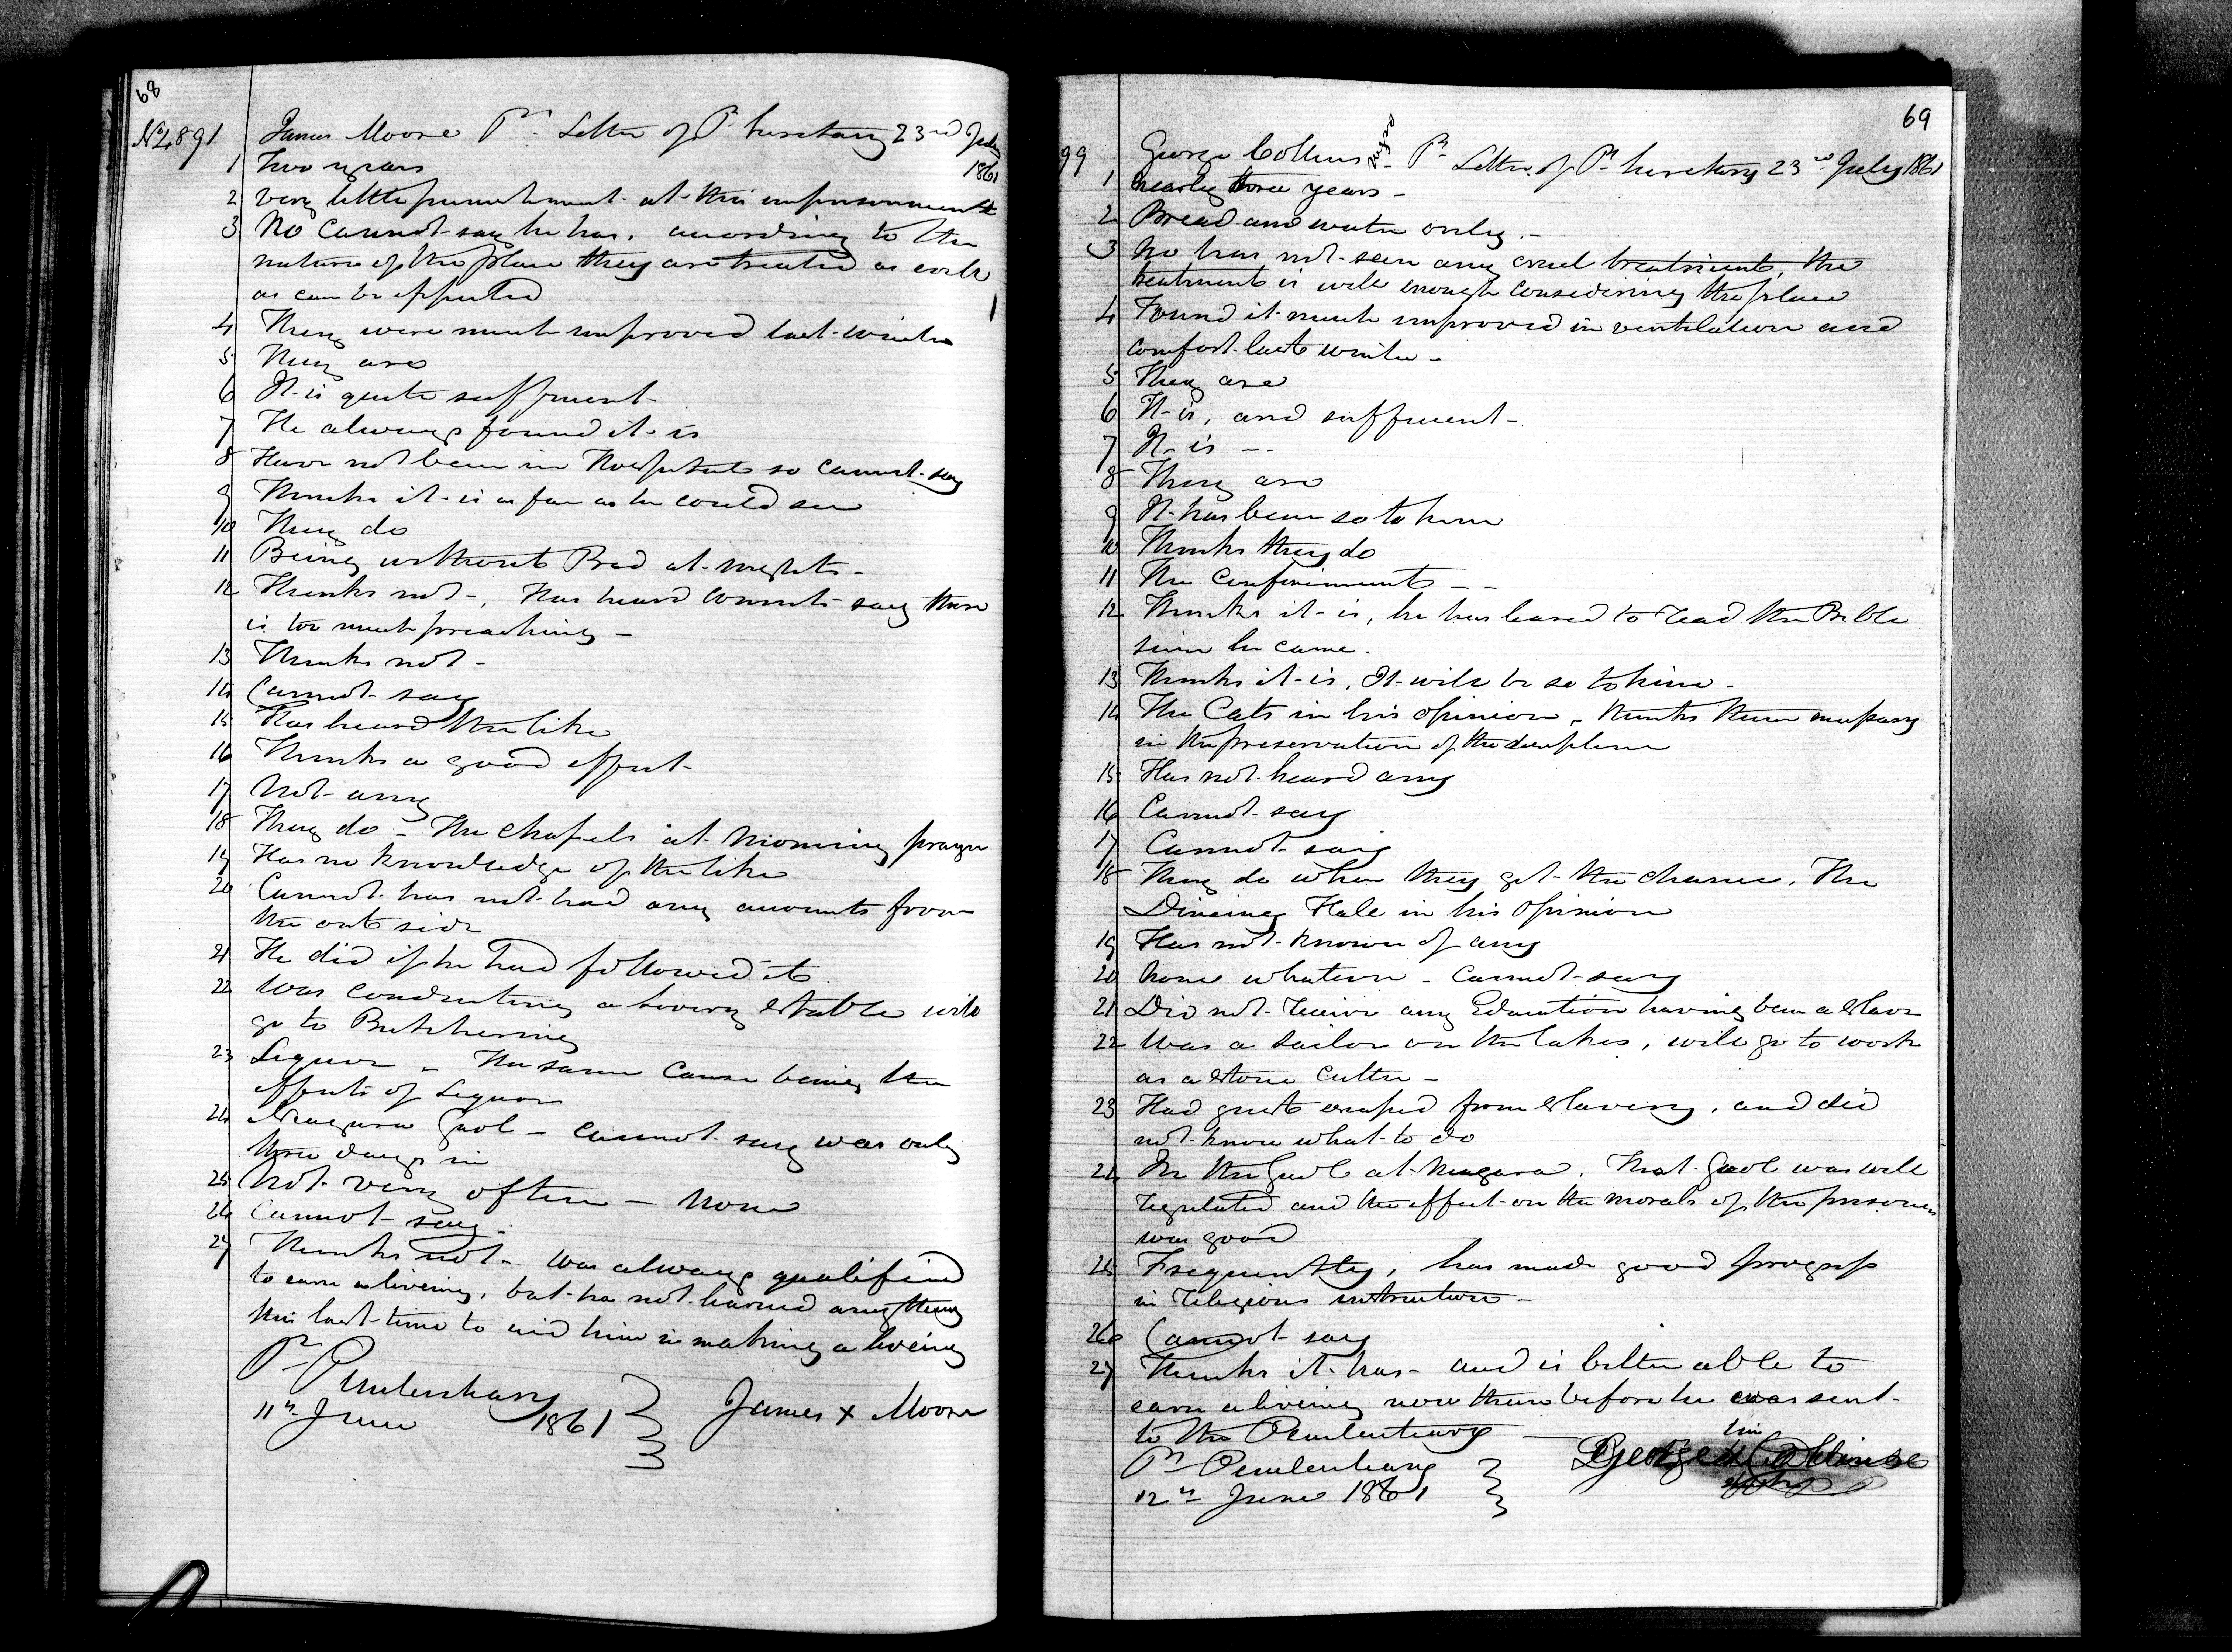 68
No 4891 James Moore Pr. Letter of P. Secretary 23rd July
1861
1 Two years
2 very little punishment at this imprisonment
3 No Cannot say he has, according to the
nature of the place they are treated as well
as can be expected
4 They were much improved last winter
5 They are
6 It is quite sufficient
7 He always found it is
8 Have not been in Hospital so cannot say
9 Thinks it is as far as he could see
10 They do
11 Being without Bed at nights -
12 Thinks not -, Has heard convicts say there
is too much preaching -
13 Thinks not -
14 Cannot say
15 Has heard the like
16 Thinks a good effect
17 Not any
18 They do - The chapels at Morning prayer
19 Has no knowledge of the like
20 Cannot has not had any accounts from
the out side
21 He did if he had followed it
22 Was conducting a Livery Stable will
go to Butchering
23 Liquor - The same cause being the
effects of Liquor
24 Niagara Gaol - cannot say was only
three days in
25 Not very often - None
26 Cannot say -
27 Thinks not - was always qualified
to earn a living, but has not learned anything
this last time to aid him in making a living
Pr Penitentiary
11th June 1861
James X Moore
69
99 George Collins Negro - Pr Letter of Pr Secretary 23rd July 1861
1 Nearly three years -
2 Bread and water only -
3 No has not seen any cruel treatment, the
treatment is well enough considering the place
4 Found it much improved in ventilation and
comfort last winter -
5 They are
6 It is, and sufficient -
7 It is -
8 They are
9 It has been so to him
10 Thinks they do
11 The Confinement - -
12 Thinks it is, he has learned to read the Bible
since he came.
13 Thinks it is, It will be so to him -
14 The Cats in his opinion - thinks them necessary
in the preservation of the discipline
15 Has not heard any
16 Cannot say
17 Cannot say
18 They do when they get the chance, The
Dineing Hall in his opinion
19 Has not known of any
20 None whatever - cannot say
21 Did not receive any Education having been a Slave
22 Was a Sailor on the lakes, will go to work
as a Stone Cutter -
23 Had just escaped from Slavery, and did
not know what to do
24 In the Gaol at Niagara, That Gaol was well
regulated and the effect on the morals of the prisoners
was good
25 Frequently, has made good progress
in religious instruction -
26 Cannot say
27 Thinks it has - and is better able to
earn a living now than before he was sent
to the Penitentiary -
Pr Penitentiary
12th June 1861
his
George X Collinse